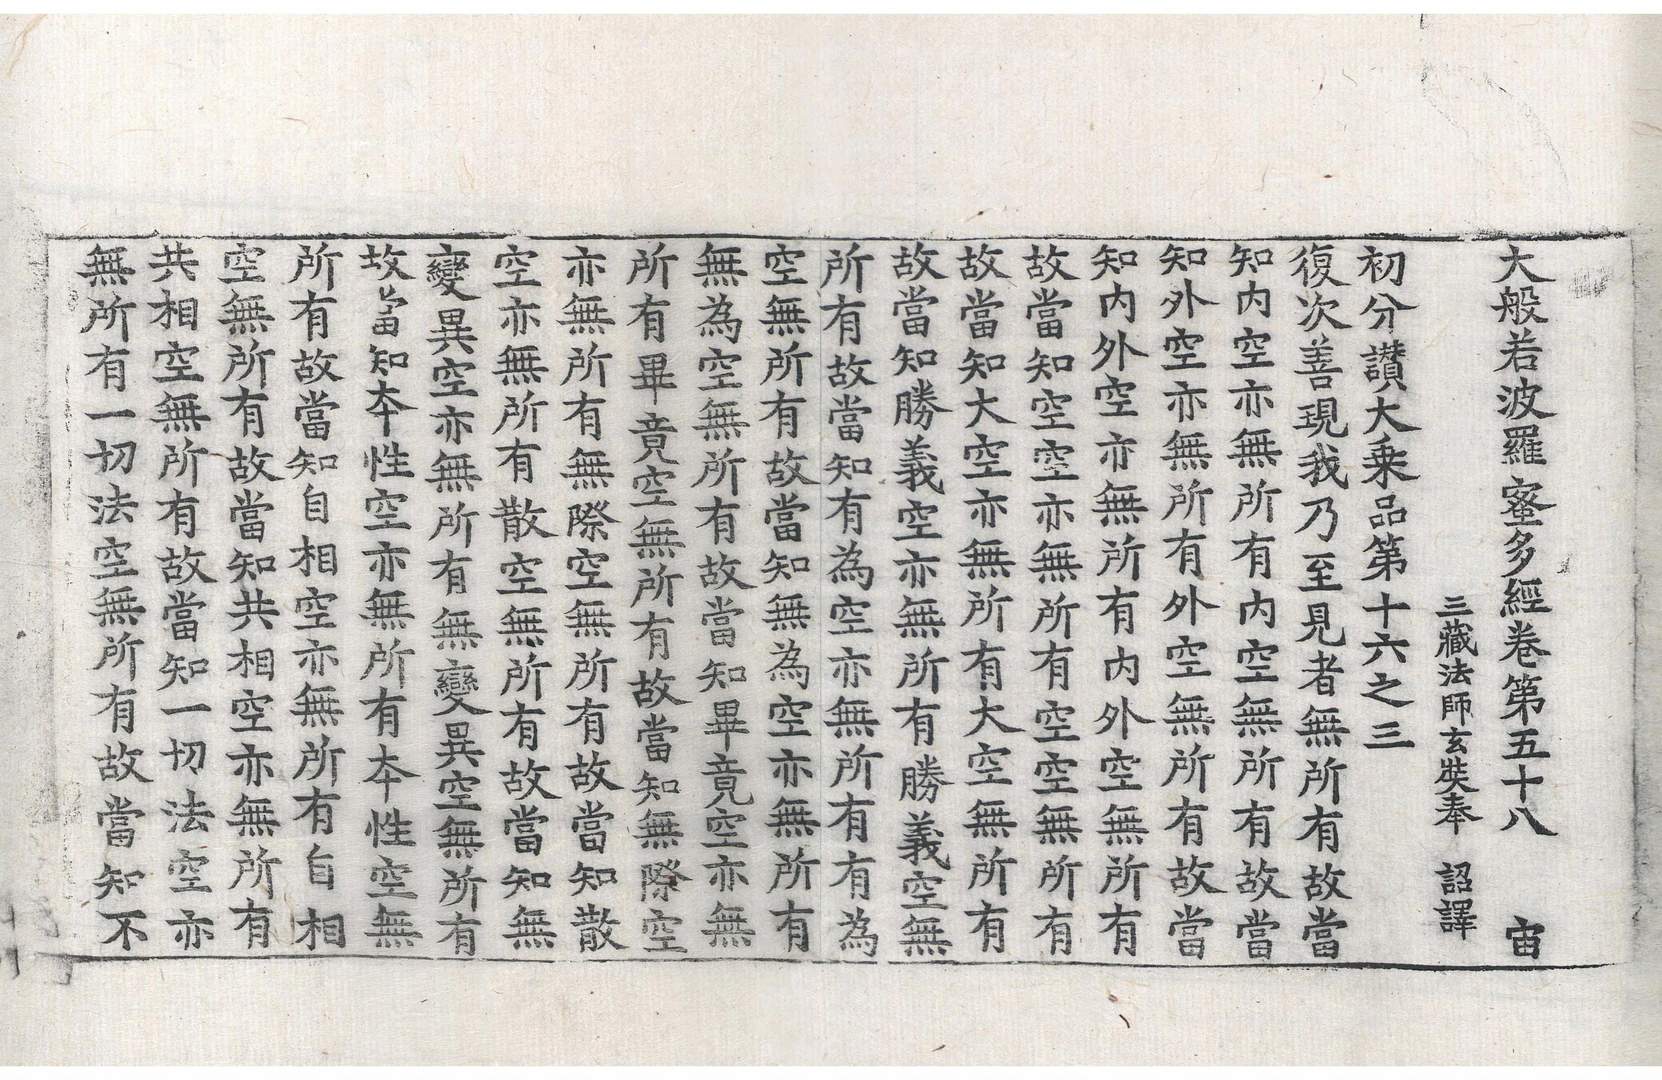 大般若波羅蜜多經卷第五十八　宙
三藏法師玄奘奉　詔譯
初分讚大乘品第十六之三
復次善現我乃至見者無所有故當
知内空亦無所有内空無所有故當
知外空亦無所有外空無所有故當
知内外空亦無所有内外空無所有
故當知空空亦無所有空空無所有
故當知大空亦無所有大空無所有
故當知勝義空亦無所有勝義空無
所有故當知有為空亦無所有有為
空無所有故當知無為空亦無所有
無為空無所有故當知畢竟空亦無
所有畢竟空無所有故當知無際空
亦無所有無際空無所有故當知散
空亦無所有散空無所有故當知無
變異空亦無所有無變異空無所有
故當知夲性空亦無所有夲性空無
所有故當知自相空亦無所有自相
空無所有故當知共相空亦無所有
共相空無所有故當知一切法空亦
無所有一切法空無所有故當知不